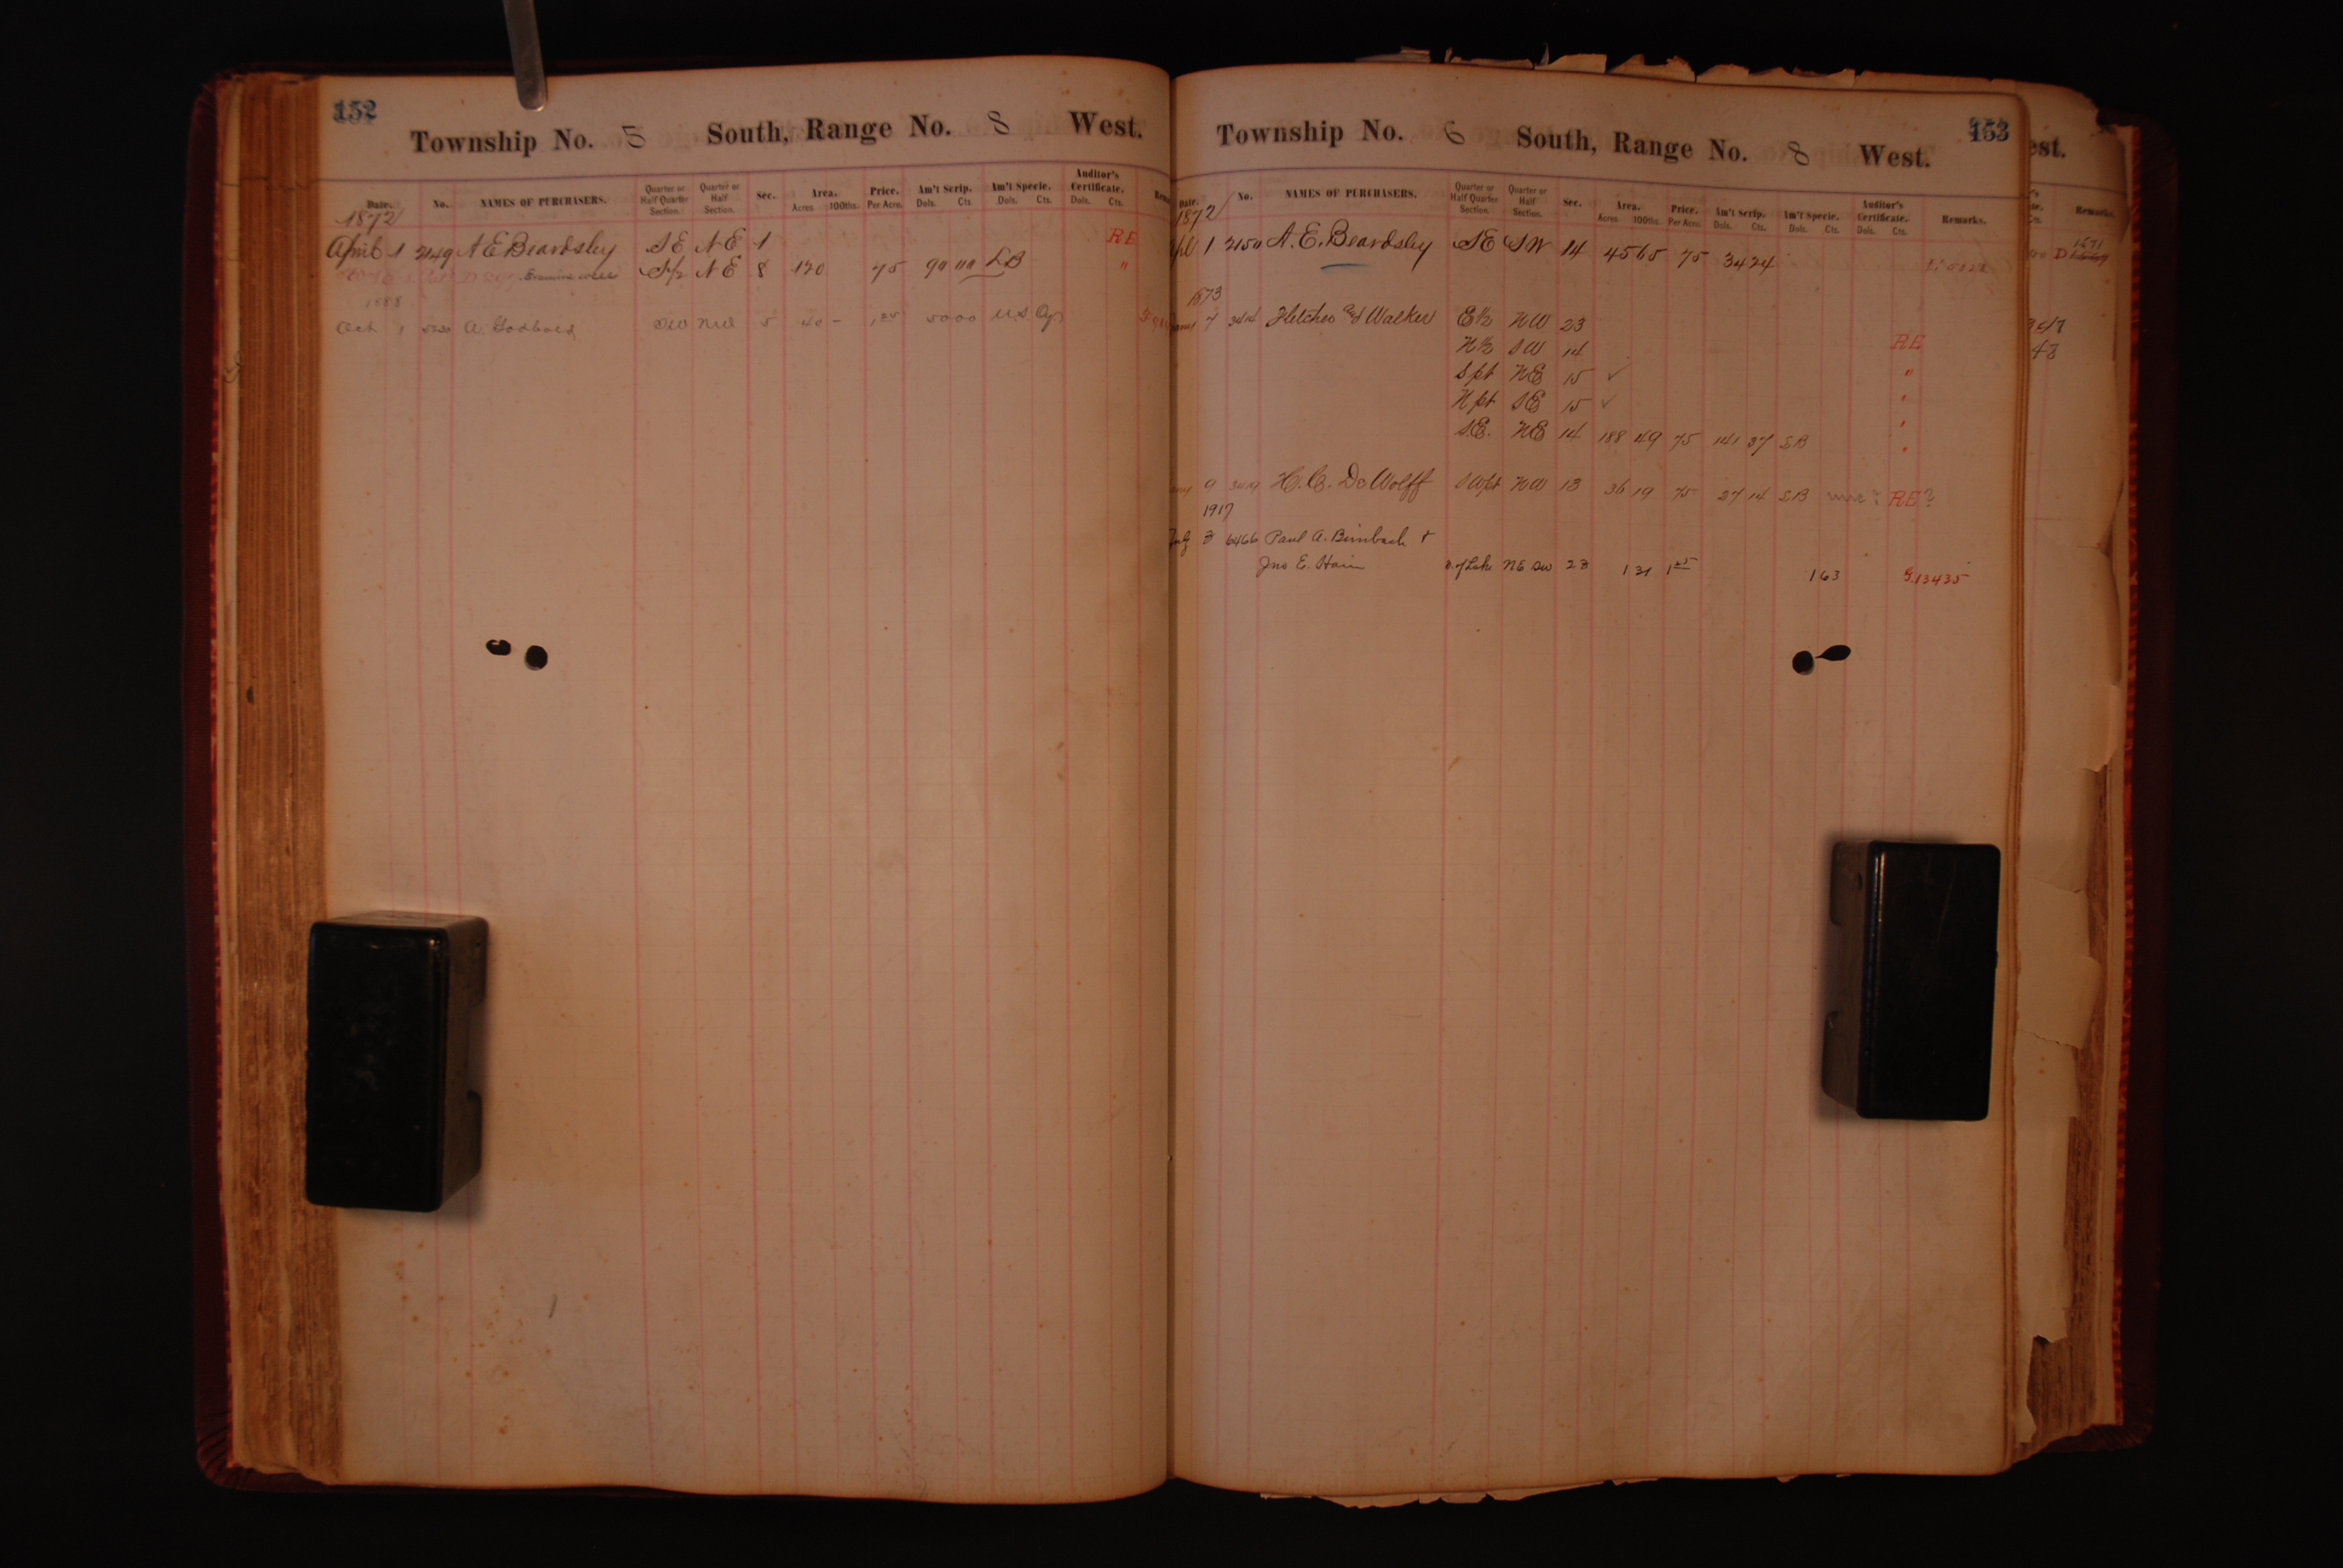 152
Township No. 5 South, Range No. 8 West.
Date. No. NAMES OF PURCHASERS. Quarter or Half Quarter Section. Quarter or Half Section. Sec. Area. Acres 100ths. Price. Per Acre. Am't Scrip. Dols. Cts. Am't Specie. Dols. Cts. Auditor's Certificate. Dols. Cts.
1872
April 1 2149 A E Beardsley SE NE 1 RE
S/2 NE 8 120 75 90 00 LB "
1888
Oct 1 A. Godbold SW NW 5 40 - 1 25 50 00 US
153
Township No. 6 South, Range No. 8 West.
Date. No. NAMES OF PURCHASERS. Quarter or Half Quarter Section. Quarter or Half Section. Sec. Area. Acres 100ths. Price. Per Acre. Am't Scrip. Dols. Cts. Am't Specie. Dols. Cts. Auditor's Certificate. Dols. Cts. Remarks.
1872
Apl 1 2150 A. E. Beardsley SE SW 14 45 65 75 34 24
1873
7 Fletcher & Walker E½ NW 23
N½ SW 14 RE
S pt NE 15 ✓ "
N pt SE 15 ✓ "
S.E. NE 14 188 49 75 141 37 SB "
9 H. C. DeWolff SWpt NW 13 36 19 75 27 14 SB RE ?
1917
July 3 6466 Paul A. Birnbach +
Jno E. Hain of Lake NE SW 23 1 31 1 25 1 63 13435
est.
Remarks.